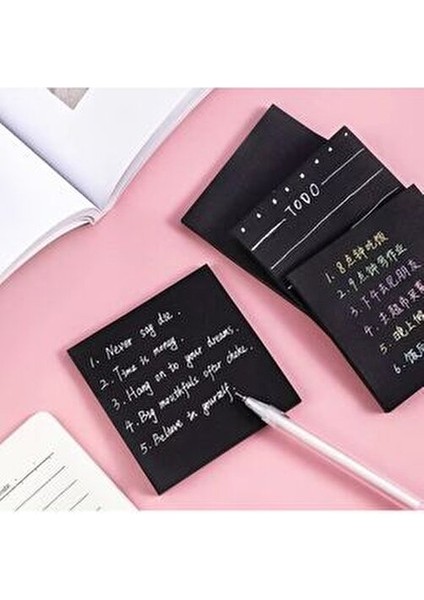 TODO
1. 8点钟吃饭
2. 9点钟写作业
3. 下午去见朋友
4. 去超市买
5. 晚上
6. 饭后
1. Never say die.
2. Time is money.
3. Hang on to your dreams.
4. Big mouthfuls ofter choke.
5. Believe in yourself.